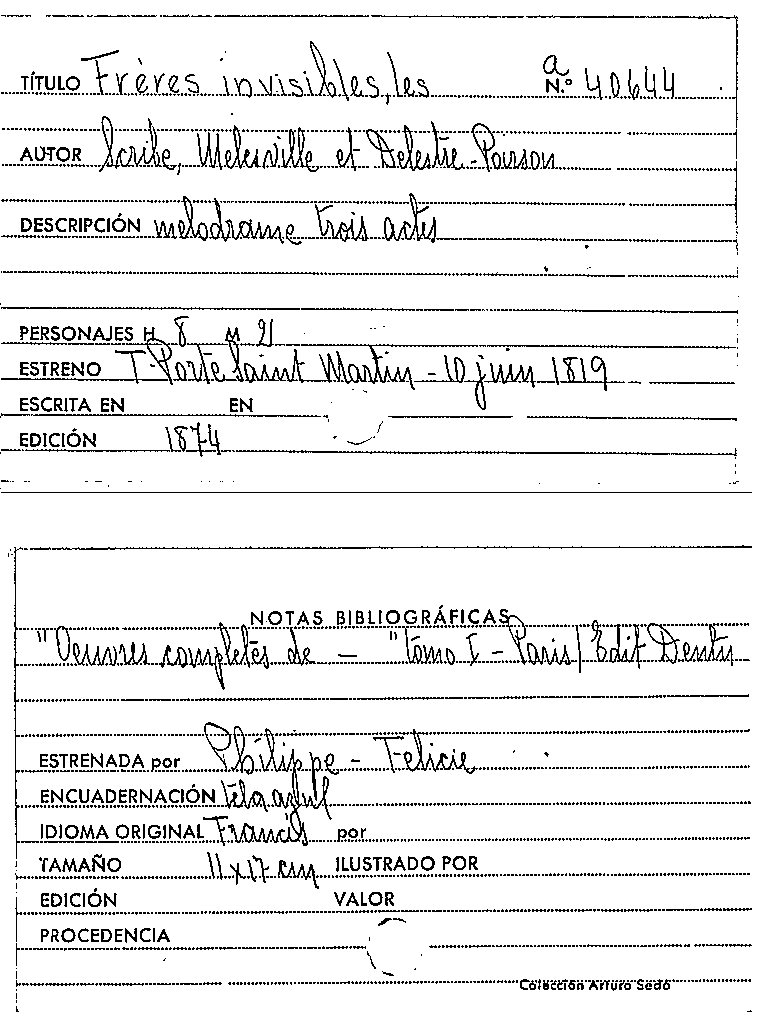 a
TÍTULO Frères invisibles, les N.º 40644
AUTOR Scribe, Melesville et Delestre-Poirson
DESCRIPCIÓN melodrame trois actes
PERSONAJES H 8 M 2
ESTRENO T. Porte Saint Martin - 10 juin 1819
ESCRITA EN EN
EDICIÓN 1874
NOTAS BIBLIOGRÁFICAS
"Oeuvres completes de — " tomo I - Paris / Edit Dentu
ESTRENADA por Philippe - Felicie
ENCUADERNACIÓN tela azul
IDIOMA ORIGINAL Francés por
TAMAÑO 11 x 17 cm ILUSTRADO POR
EDICIÓN VALOR
PROCEDENCIA
Colección Arturo Sedó